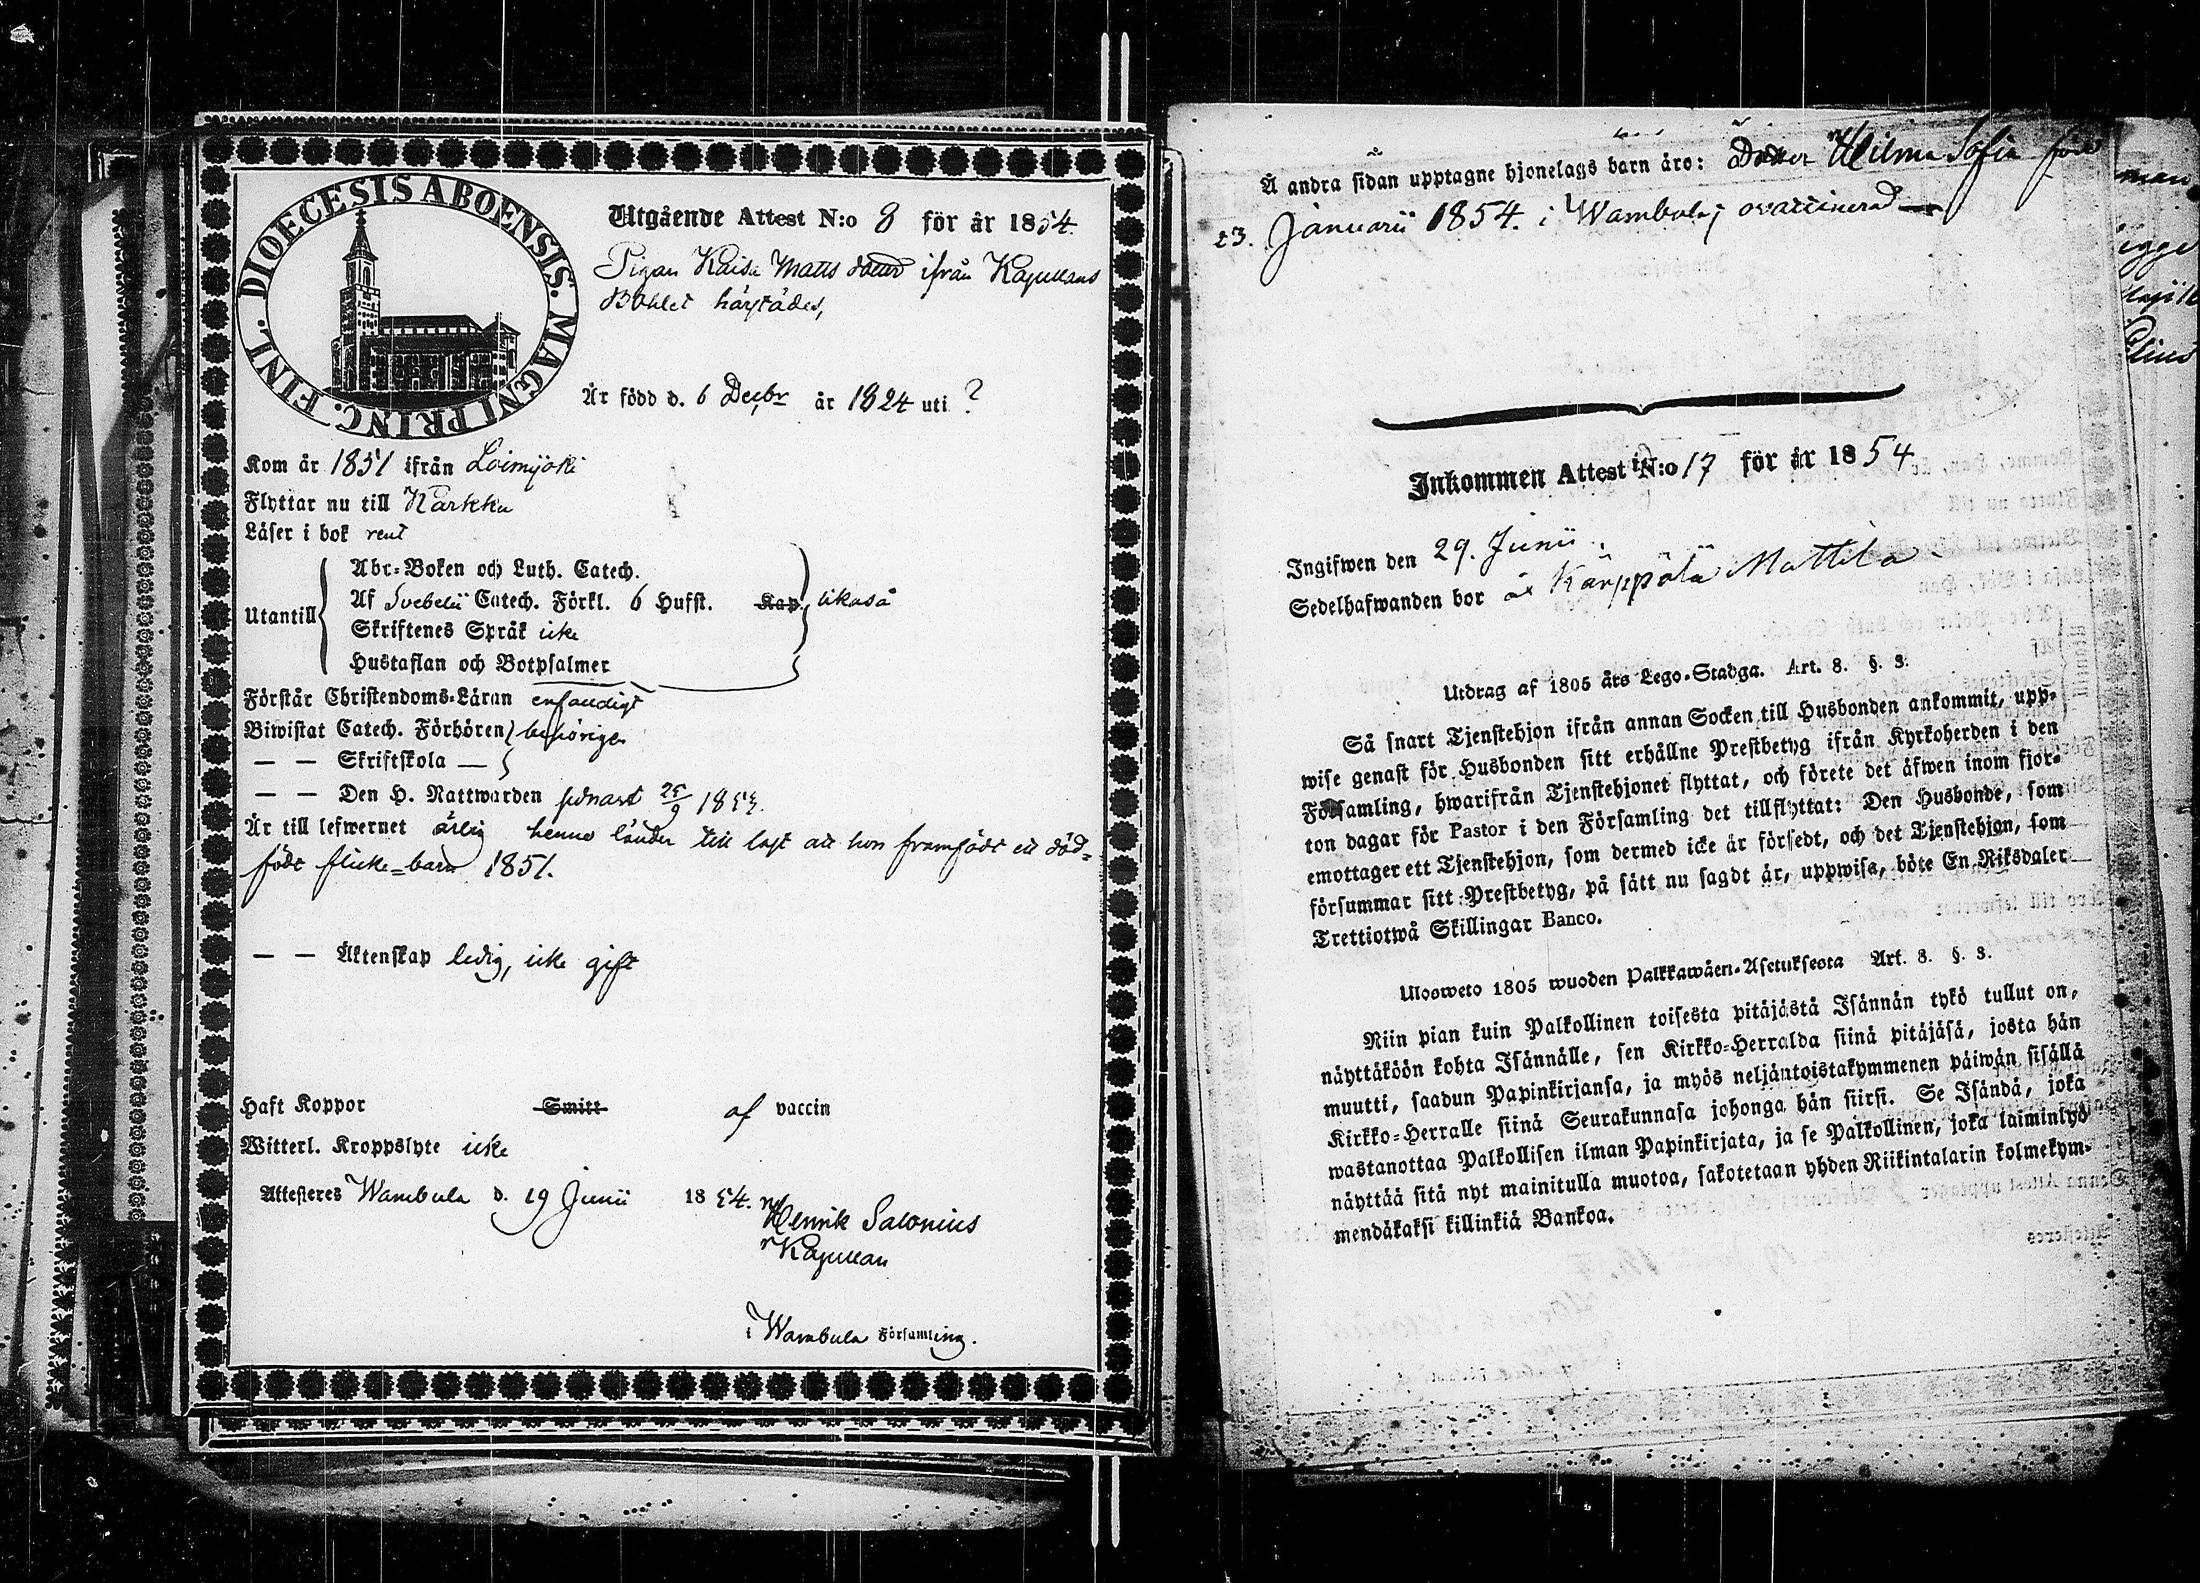 DIOECESIS ABOENSIS. MAGNI PRINC. FINL.
Utgående Attest N:o 8 för år 1854.
Pigan Kaisa Matts dotter ifrån Kapellans
Bohlet härstädes,
Är född d. 6 Decbr år 1824 uti ?
Kom år 1851 ifrån Loimijoki
Flyttar nu till Karkku
Läser i bok rent
Utantill
Abc-Boken och Luth. Catech.
Af Svebelii Catech. Förkl. 6 Hufst. Kap. likaså
Skriftenes Språk icke
Hustaflan och Botpsalmer
Förstår Christendoms-Läran enfaldigt
Biwistat Catech. Förhören behörigen
— — Skriftskola —
— — Den H. Nattwarden senast 25/9 1853.
Är till lefwernet ärlig henne länder till last att hon framfödt ett död=
födt flicke=barn 1851.
— — Äktenskap ledig, icke gift
Haft Koppor Smitt af vaccin
Witterl. Kroppslyte icke
Attesteres Wambula d. 19 Junii 1854.
Henrik Salonius
Kapellan
i Wambula Församling.
Å andra sidan upptagne hjonelags barn äro: Dotter Hilma Sofia född
23. Januarii 1854. i Wambula; ovaccinerad —
Inkommen Attest N:o 17 för år 1854
Ingifwen den 29. Junii.
Sedelhafwanden bor å Kärppälä Mattila
Utdrag af 1805 års Lego-Stadga. Art. 8. §. 3.
Så snart Tjenstehjon ifrån annan Socken till Husbonden ankommit, upp-
wise genast för Husbonden sitt erhållne Prestbetyg ifrån Kyrkoherden i den
Församling, hwarifrån Tjenstehjonet flyttat, och förete det äfwen inom fjor-
ton dagar för Pastor i den Församling det tillflyttat: Den Husbonde, som
emottager ett Tjenstehjon, som dermed icke är försedt, och det Tjenstehjon, som
försummar sitt Prestbetyg, på sätt nu sagdt är, uppwisa, böte En Riksdaler
Trettiotwå Skillingar Banco.
Ulosweto 1805 wuoden Palkkawäen-Asetuksesta Art. 8. §. 3.
Niin pian kuin Palkollinen toisesta pitäjästä Isännän tykö tullut on,
näyttäköön kohta Isännälle, sen Kirkko-Herralda siinä pitäjäsä, josta hän
muutti, saadun Papinkirjansa, ja myös neljäntoistakymmenen päiwän sisällä
Kirkko-Herralle siinä Seurakunnasa johonga hän siirsi. Se Isändä, joka
wastanottaa Palkollisen ilman Papinkirjata, ja se Palkollinen, joka laiminlyö
näyttää sitä nyt mainitulla muotoa, sakotetaan yhden Riikintalarin kolmekym-
mendäkaksi killinkiä Bankoa.